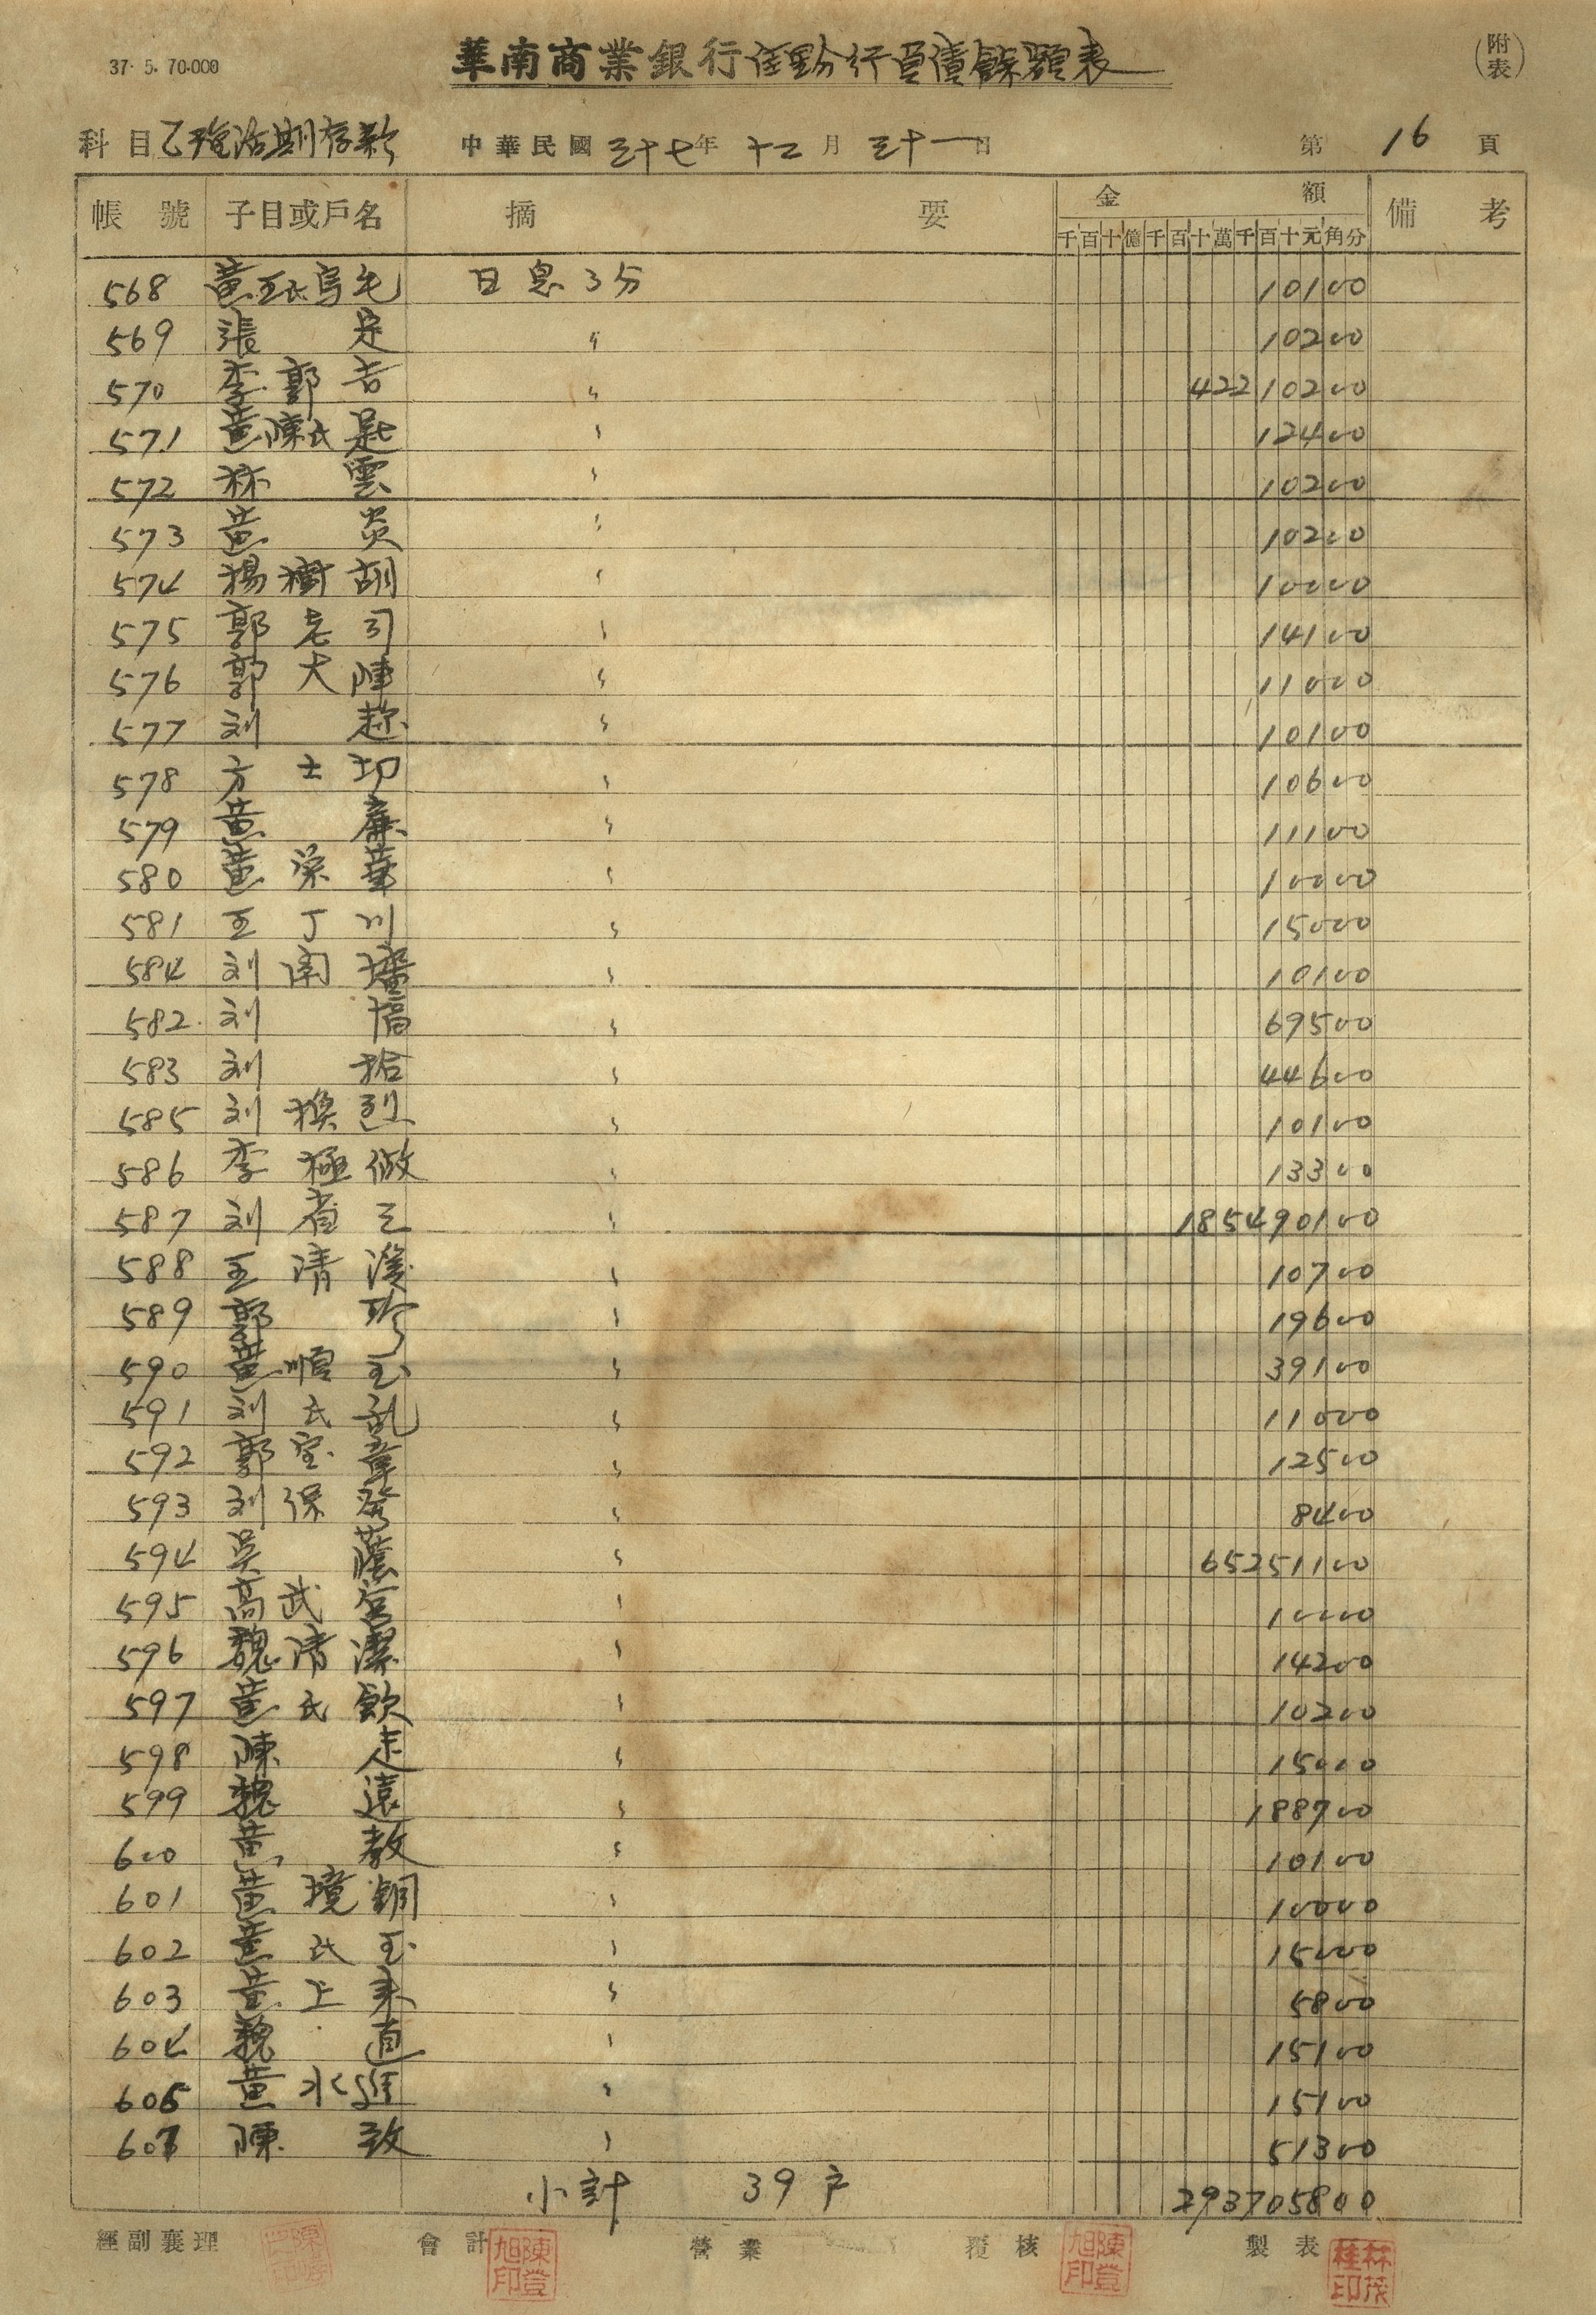 37. 5. 70.000
華南商業銀行佳里分行負債餘額表
(附表)
科目 乙種活期存款 中華民國 三十七年 十二月 三十一日 第 16 頁
帳號 子目或戶名 摘要 金額 備考
千百十億千百十萬千百十元角分
568 黃王氏烏毛 日息3分 10100
569 張 定 〃 10200
570 李郭吉 〃 42210200
571 黃陳氏匙 〃 12400
572 林 雲 〃 10200
573 黃 炎 〃 10200
574 楊樹胡 〃 10000
575 郭老司 〃 14100
576 郭大陣 〃 11000
577 刘 趂 〃 10100
578 方士功 〃 10600
579 黃 廉 〃 11100
580 黃深華 〃 10000
581 王丁川 〃 15000
584 刘南璠 〃 10100
582 刘 福 〃 69500
583 刘 拾 〃 44600
585 刘換 〃 10100
586 李極做 〃 13300
587 刘省三 〃 185490100
588 王清漢 〃 10700
589 郭 珍 〃 19600
590 黃順玉 〃 39100
591 刘氏乱 〃 11000
592 郭宝章 〃 12500
593 刘保發 〃 8400
594 吳 〃 65251100
595 高武 〃 10000
596 魏清潔 〃 14200
597 黃氏飲 〃 10200
598 陳 走 〃 15000
599 魏 遠 〃 188700
600 黃 教 〃 10100
601 黃境銅 〃 10000
602 黃氏玉 〃 15000
603 黃上束 〃 5800
604 魏 直 〃 15100
605 黃水進 〃 15100
607 陳 致 〃 51300
小計 39戶 293705800
經副襄理 會計 陳登旭印 營業 覆核 陳登旭印 製表 林茂桂印